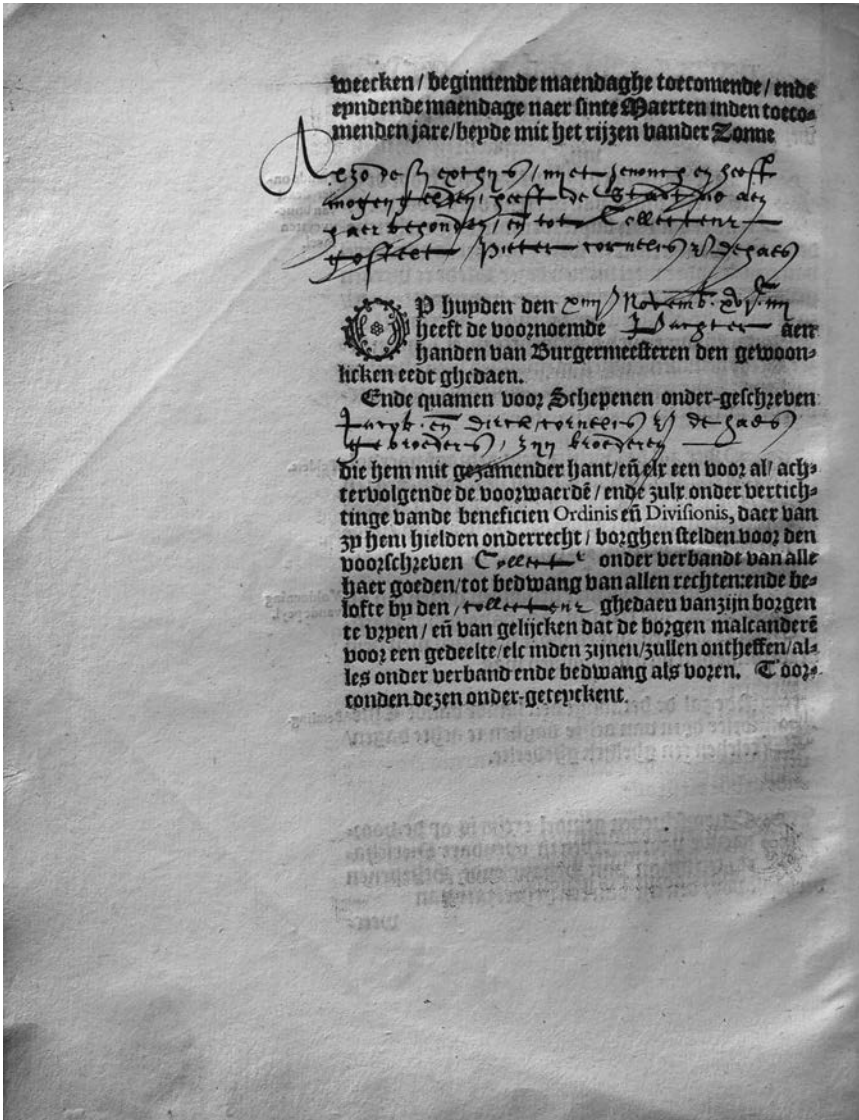 weecken / beginnende maendaghe toecomende / ende
eyndende maendage naer sinte Maerten inden toeco-
menden jare / beyde mit het rijzen vander Zonne
Alzo de niet genouch en heeft
mogen gelden, heeft de aen
haer behouden, en̄ tot Collecteur
gestelt Pieter cornelis de haes
OP huyden den xiiij Novemb.
heeft de voornoemde Pachter aen
handen van Burgermeesteren den gewoon-
licken eedt ghedaen.
Ende quamen voor Schepenen onder-geschreven
Jacob en̄ Dirck cornelis de haes
gebroeders, zijn broederen
die hem mit gezamender hant / en̄ elx een voor al / ach-
tervolgende de voorwaerdē / ende zulx onder vertich-
tinge vande beneficien Ordinis en̄ Divisionis, daer van
zy hem hielden onderrecht / borghen stelden voor den
voorschreven Collecteur onder verbandt van alle
haer goeden / tot bedwang van allen rechten: ende be-
lofte by den / collecteur ghedaen van zijn borgen
te vryen / en̄ van gelijcken dat de borgen malcanderē
voor een gedeelte / elc inden zijnen / zullen ontheffen / al-
les onder verband ende bedwang als voren. Toor-
conden dezen onder-geteyckent.